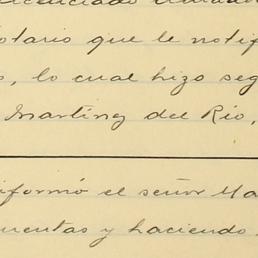 otario que le notif
, lo cual hizo seg
Martinez del Río,
iformó el señor Ma
uentas y haciendo